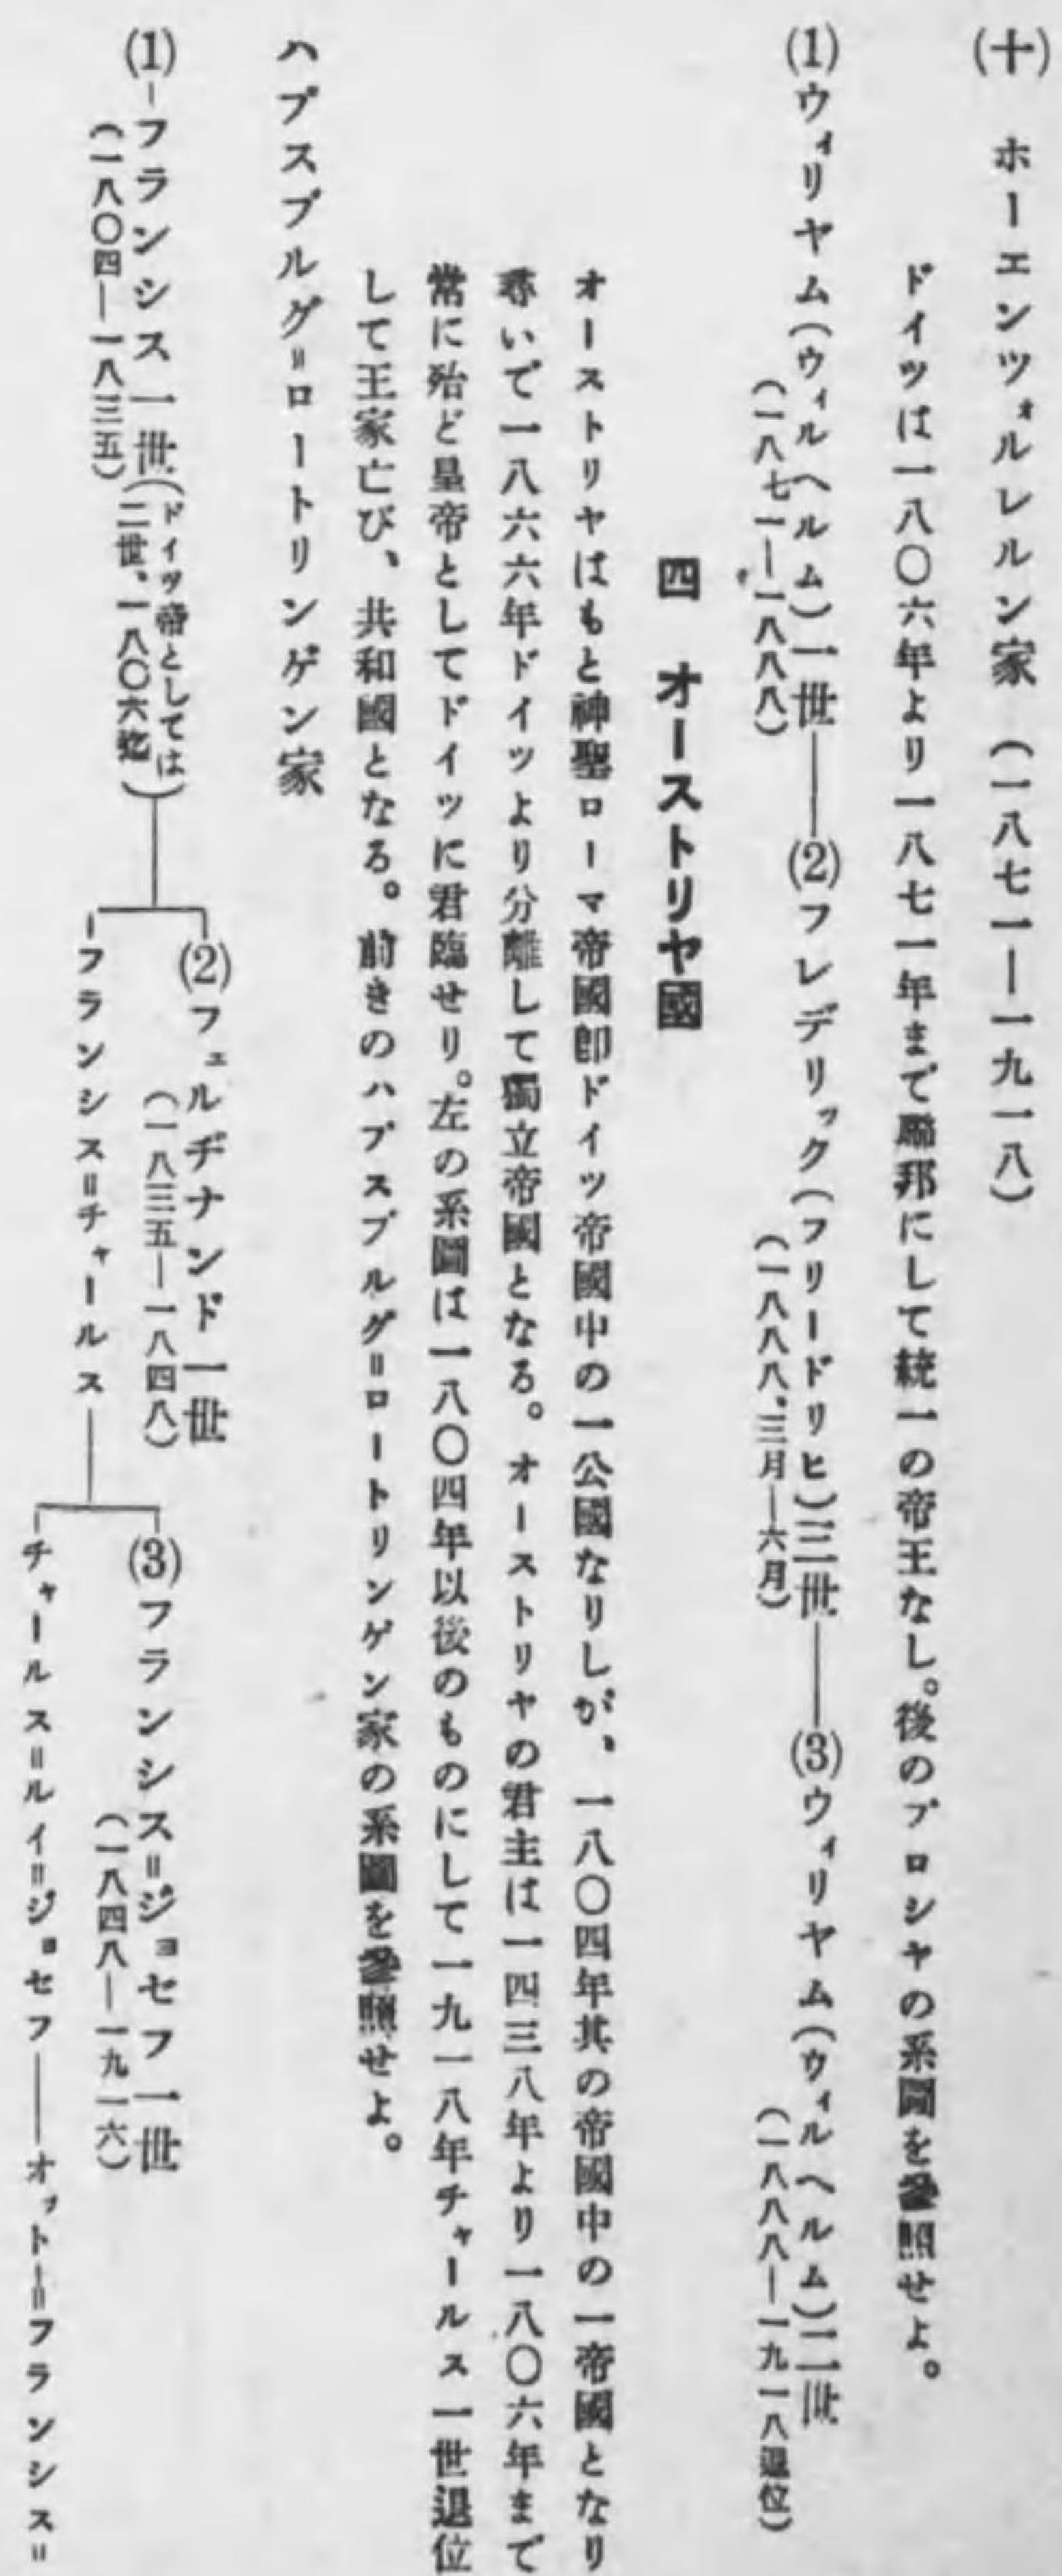 (十)　ホーエンツォルレルン家　(一八七一―一九一八)
ドイツは一八〇六年より一八七一年まで聯邦にして統一の帝王なし。後のプロシヤの系圖を參照せよ。
(1)ウィリヤム(ウィルヘルム)一世――(2)フレデリック(フリードリヒ)三世――(3)ウィリヤム(ウィルヘルム)二世
(一八七一―一八八八)
(一八八八、三月―六月)
(一八八八―一九一八退位)
四　オーストリヤ國
オーストリヤはもと神聖ローマ帝國卽ドイツ帝國中の一公國なりしが、一八〇四年其の帝國中の一帝國となり
尋いで一八六六年ドイツより分離して獨立帝國となる。オーストリヤの君主は一四三八年より一八〇六年まで
常に殆ど皇帝としてドイツに君臨せり。左の系圖は一八〇四年以後のものにして一九一八年チャールス一世退位
して王家亡び、共和國となる。前きのハプスブルグ＝ロートリンゲン家の系圖を參照せよ。
ハプスブルグ＝ロートリンゲン家
(1)―フランシス一世(ドイツ帝としては
二世、一八〇六迄)
(一八〇四―一八三五)
(2)フェルヂナンド一世
(一八三五―一八四八)
フランシス＝チャールス
(3)フランシス＝ジョセフ一世
(一八四八―一九一六)
チャールス＝ルイ＝ジョセフ――オットー＝フランシス＝